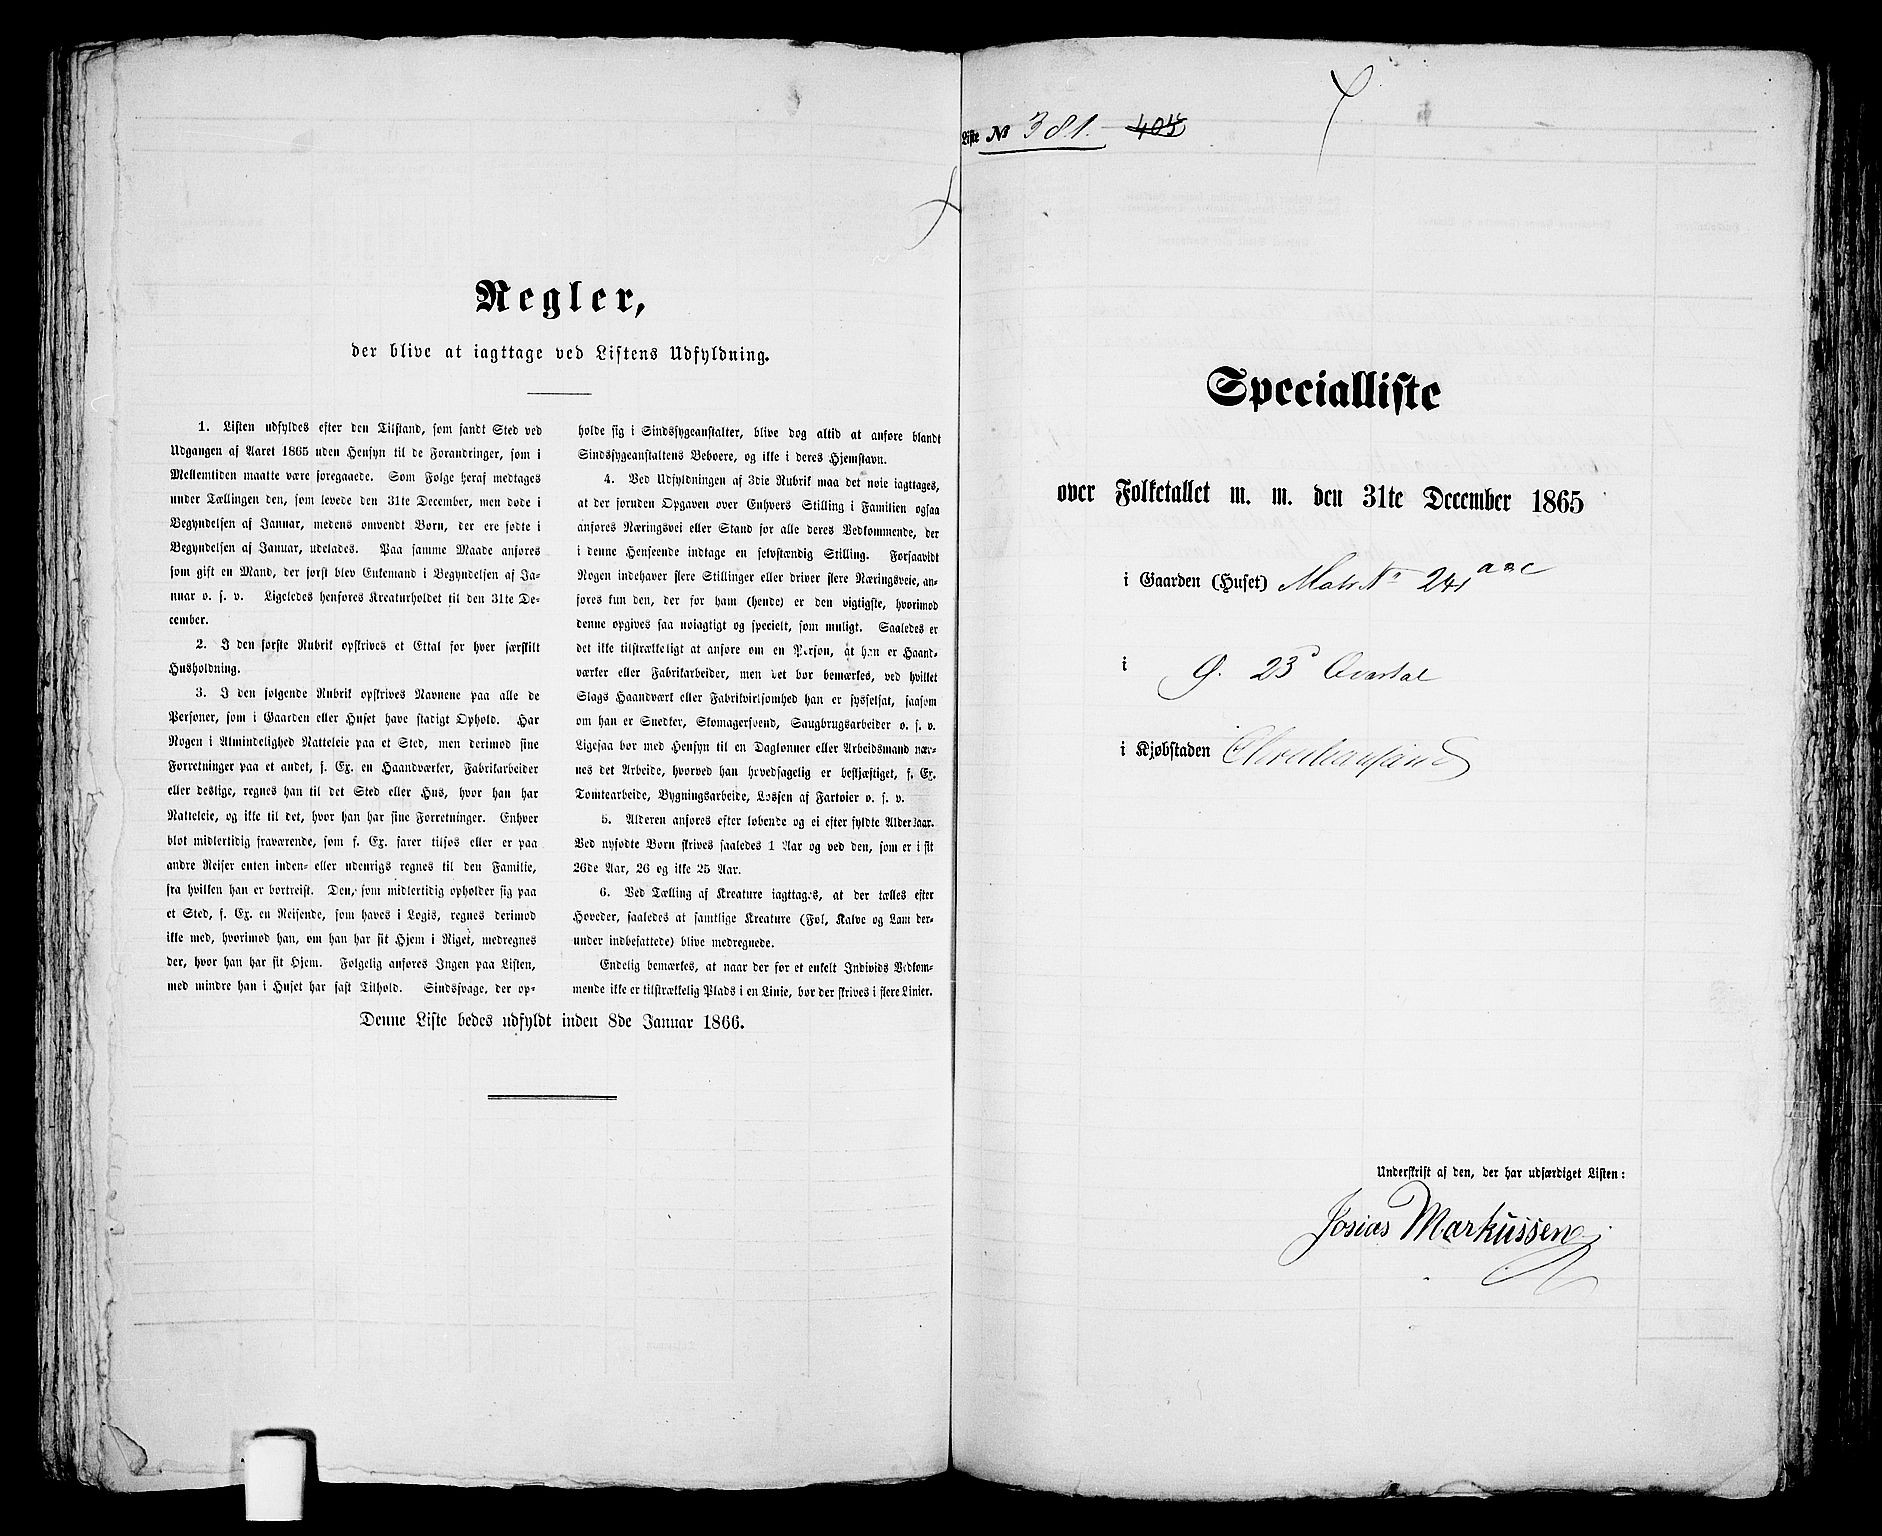 Regler,
der blive at iagttage ved Listens Udfyldning.
1. Listen udfyldes efter den Tilstand, som fandt Sted ved
Udgangen af Aaret 1865 uden Hensyn til de Forandringer, som i
Mellemtiden maatte være foregaaede. Som Følge heraf medtages
under Tællingen den, som levede den 31te December, men døde i
Begyndelsen af Januar, medens omvendt Børn, der ere fødte i
Begyndelsen af Januar, udelades. Paa samme Maade anføres
som gift en Mand, der først blev Enkemand i Begyndelsen af Ja-
nuar o. s. v. Ligeledes henføres Kreaturholdet til den 31te De-
cember.
2. I den første Rubrik opskrives et Ettal for hver særskilt
Husholdning.
3. I den følgende Rubrik opskrives Navnene paa alle de
Personer, som i Gaarden eller Huset have stadigt Ophold. Har
Nogen i Almindelighed Natteleie paa et Sted, men derimod sine
Forretninger paa et andet, f. Ex. en Haandværker, Fabrikarbeider
eller deslige, regnes han til det Sted eller Hus, hvor han har
Natteleie, og ikke til det, hvor han har sine Forretninger. Enhver
blot midlertidig fraværende, som f. Ex. farer tilsøs eller er paa
andre Reiser enten inden- eller udenrigs regnes til den Familie,
fra hvilken han er bortreist. Den, som midlertidig opholder sig paa
et Sted, f. Ex. en Reisende, som haves i Logis, regnes derimod
ikke med, hvorimod han, om han har sit Hjem i Riget, medregnes
der, hvor han har sit Hjem. Følgelig anføres Ingen paa Listen,
med mindre han i Huset har fast Tilhold. Sindssvage, der op-
holde sig i Sindssygeanstalter, blive dog altid at anføre blandt
Sindssygeanstaltens Beboere, og ikke i deres Hjemstavn.
4. Ved Udfyldningen af 3die Rubrik maa det nøie iagttages,
at der foruden Opgaven over Enhvers Stilling i Familien ogsaa
anføres Næringsvei eller Stand for alle deres Vedkommende, der
i denne Henseende indtage en selvstændig Stilling. Forsaavidt
Nogen indehaver flere Stillinger eller driver flere Næringsveie, an-
føres kun den, der for ham (hende) er den vigtigste, hvorimod
denne opgives saa nøiagtigt og specielt, som muligt. Saaledes er
det ikke tilstrækkeligt at anføre om en Person, at han er Haand-
værker eller Fabrikarbeider, men det bør bemærkes, ved hvilket
Slags Haandværk eller Fabrikvirksomhed han er sysselsat, saasom
om han er Snedker, Skomagersvend, Saugbrugsarbeider o. s. v.
Ligesaa bør med Hensyn til en Daglønner eller Arbeidsmand næv-
nes det Arbeide, hvorved han hovedsagelig er beskjæftiget, f. Ex.
Tomtearbeide, Bygningsarbeide, Lossen af Fartøier o. s. v.
5. Alderen anføres efter løbende og ei efter fyldte Aldersaar.
Ved nyfødte Børn skrives saaledes 1 Aar og ved den, som er i sit
26de Aar, 26 og ikke 25 Aar.
6. Ved Tælling af Kreature iagttages, at der tælles efter
Hoveder, saaledes at samtlige Kreature (Føl, Kalve og Lam der-
under indbefattede) blive medregnede.
Endelig bemærkes, at naar der for et enkelt Individs Vedkom-
mende ikke er tilstrækkelig Plads i en Linie, bør der skrives i flere Linier.
Denne Liste bedes udfyldt inden 8de Januar 1866.
Liste No 381. 405
Specialliste
over Folketallet m. m. den 31te December 1865
i Gaarden (Huset) Matr No 24, aac
i Ø. 23 Qvartal
i Kjøbstaden Christiansand
Underskrift af den, der har udfærdiget Listen:
Josias Markussen